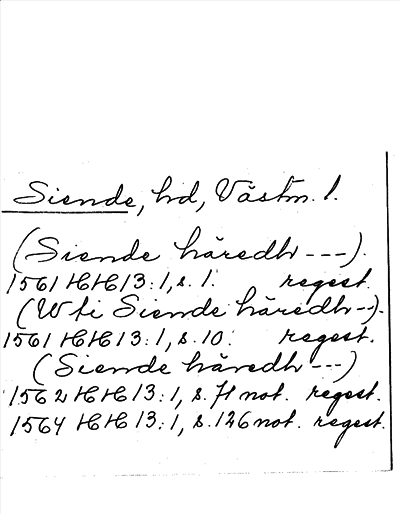 Siende, hd, Västm. l.
(Siende häredh ---).
1561 HH 13:1, s. 1. regest.
(W ti Siende häredh --).
1561 HH 13:1, s. 10. regest.
(Siende häredh ---)
1562 HH 13:1, s. 71 not. regest.
1564 HH 13:1, s. 126 not. regest.